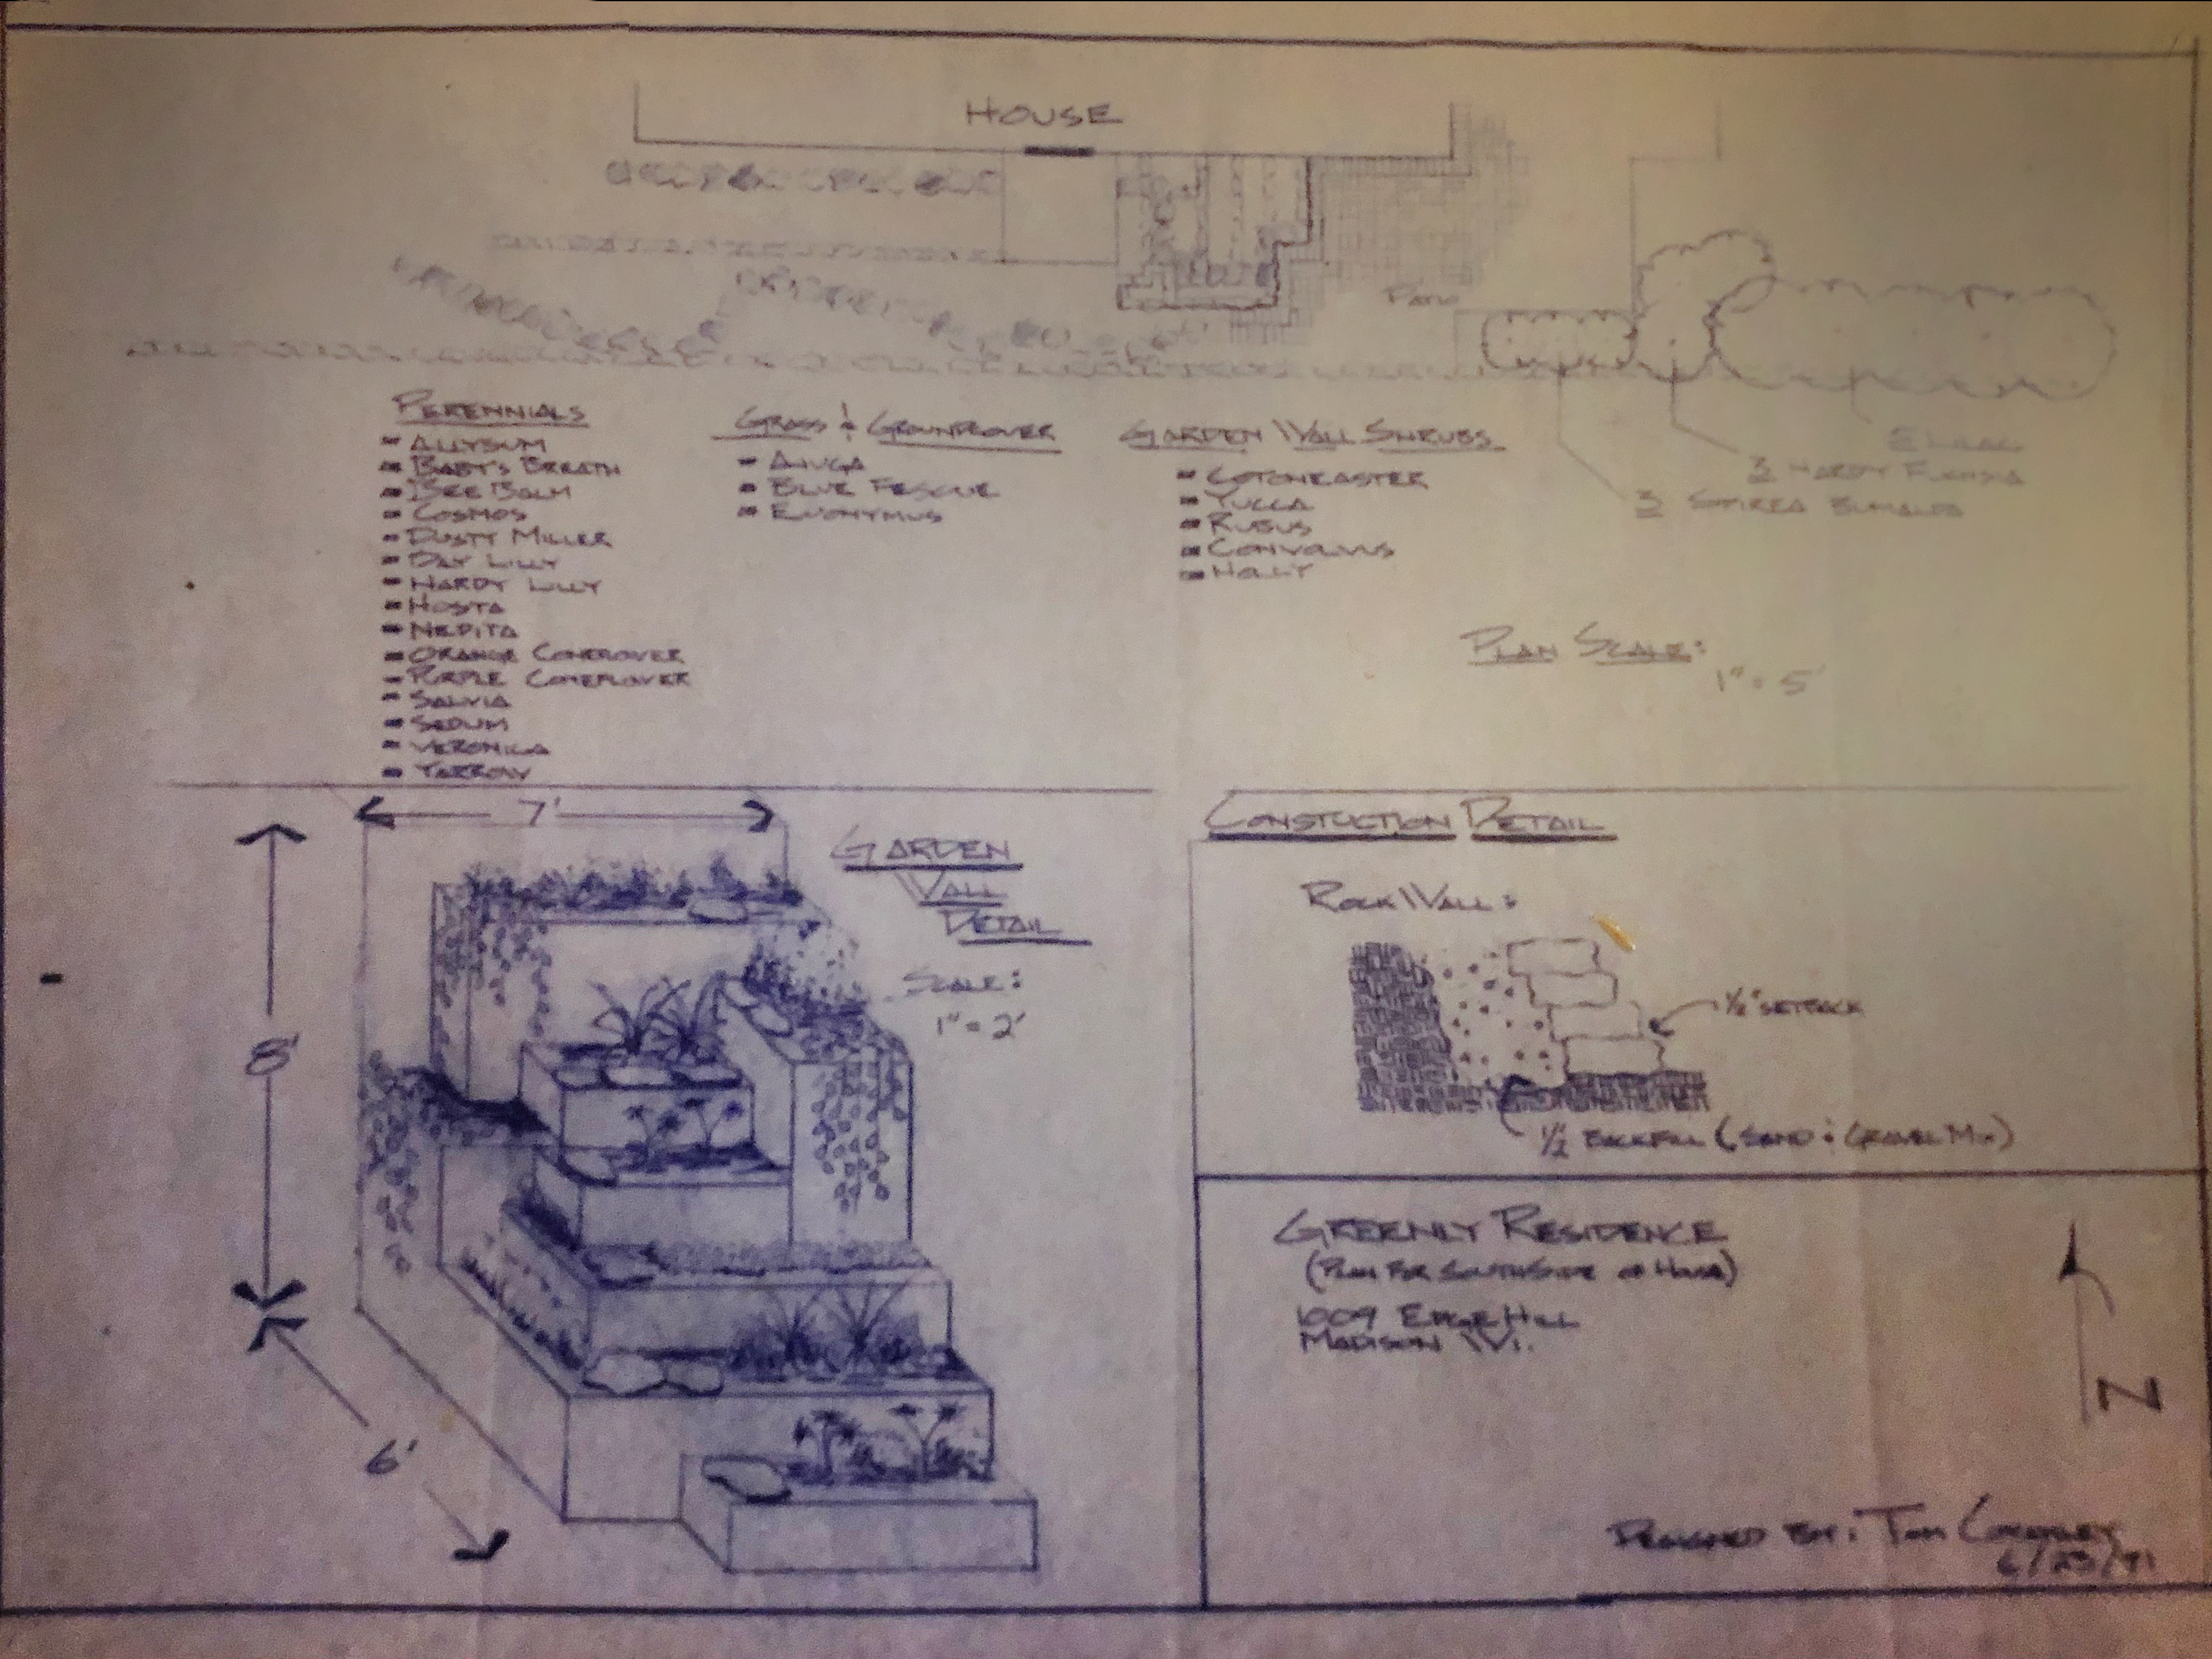 HOUSE
PATIO
PERENNIALS
- ALLYSUM
- BABY'S BREATH
- BEE BALM
- COSMOS
- DUSTY MILLER
- DAY LILLY
- HARDY LILLY
- HOSTA
- NEPITA
- ORANGE CONEFLOWER
- PURPLE CONEFLOWER
- SALVIA
- SEDUM
- VERONICA
- YARROW
GRASS & GROUNDCOVER
- AJUGA
- BLUE FESCUE
- EUONYMUS
GARDEN WALL SHRUBS
- COTONEASTER
- YUCCA
- RUBUS
- CONVOLVUS
- HOLLY
LILAC
3 HARDY FUCHSIA
3 SPIREA BUMALDA
PLAN SCALE:
1" = 5'
7'
8'
6'
GARDEN
WALL
DETAIL
SCALE:
1" = 2'
CONSTUCTION DETAIL
ROCK WALL:
1/2" SETBACK
1/2 BACKFILL (SAND & GRAVEL MIX)
GREENLY RESIDENCE
(PLAN FOR SOUTHSIDE OF HOUSE)
1009 EDGEHILL
MADISON WI.
N
DESIGNED BY: TOM
6/23/91